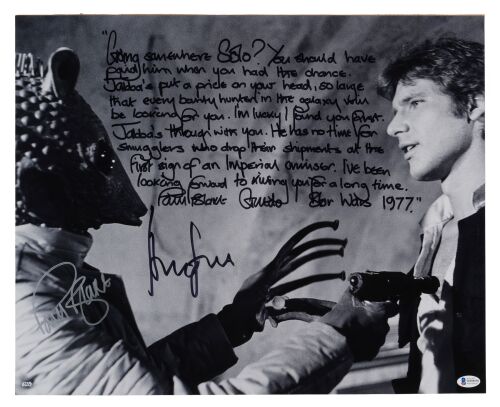 "Going somewhere Solo? You should have
paid him when you had the chance.
Jabba's put a price on your head, so large
that every bounty hunter in the galaxy will
be looking for you. I'm lucky I found you first.
Jabba's through with you. He has no time for
smugglers who drop their shipments at the
first sign of an Imperial cruiser. I've been
looking forward to killing you for a long time.
Paul Blake Greedo Star Wars 1977."
Paul Blake